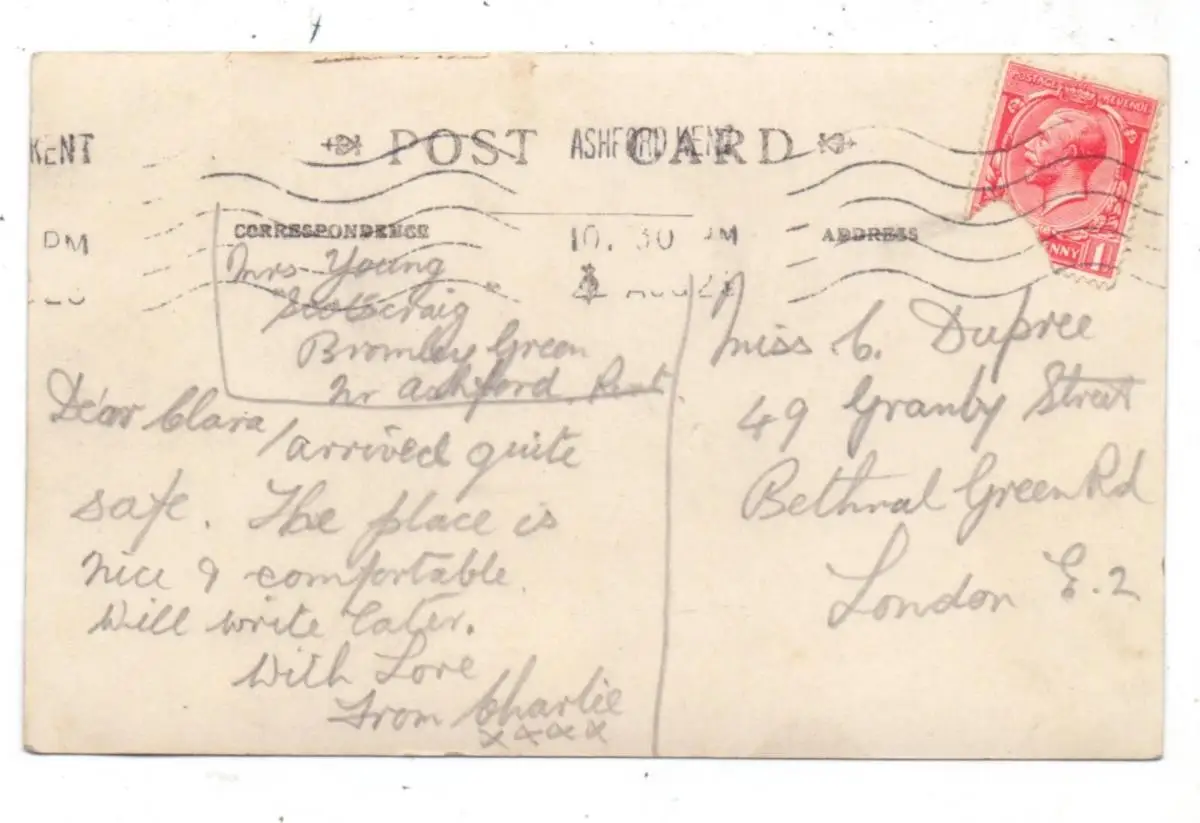 KENT
POST CARD
ASHFORD KENT
PM
10. 30 PM
AUG
CORRESPONDENCE
ADDRESS
POSTAGE REVENUE
NNY 1
Mrs Young
Bromley Green
Nr Ashford. Kent.
Dear Clara
arrived quite
safe. The place is
nice & comfortable.
Will write later.
With Love
From Charlie
xxxx
Miss C. Dupree
49 Granby Street
Bethnal Green Rd
London E.2